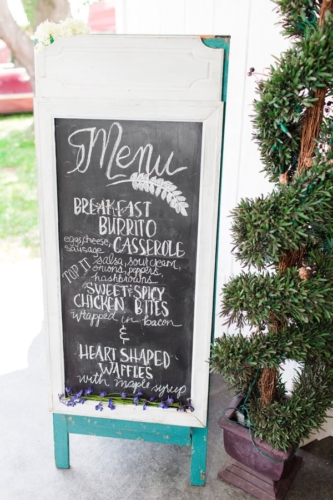 Menu
BREAKFAST
BURRITO
eggs, cheese, CASSEROLE
sausage
TOP IT salsa, sour cream,
onions, peppers,
hashbrowns
SWEET & SPICY
CHICKEN BITES
wrapped in bacon
&
HEART SHAPED
WAFFLES
with maple syrup